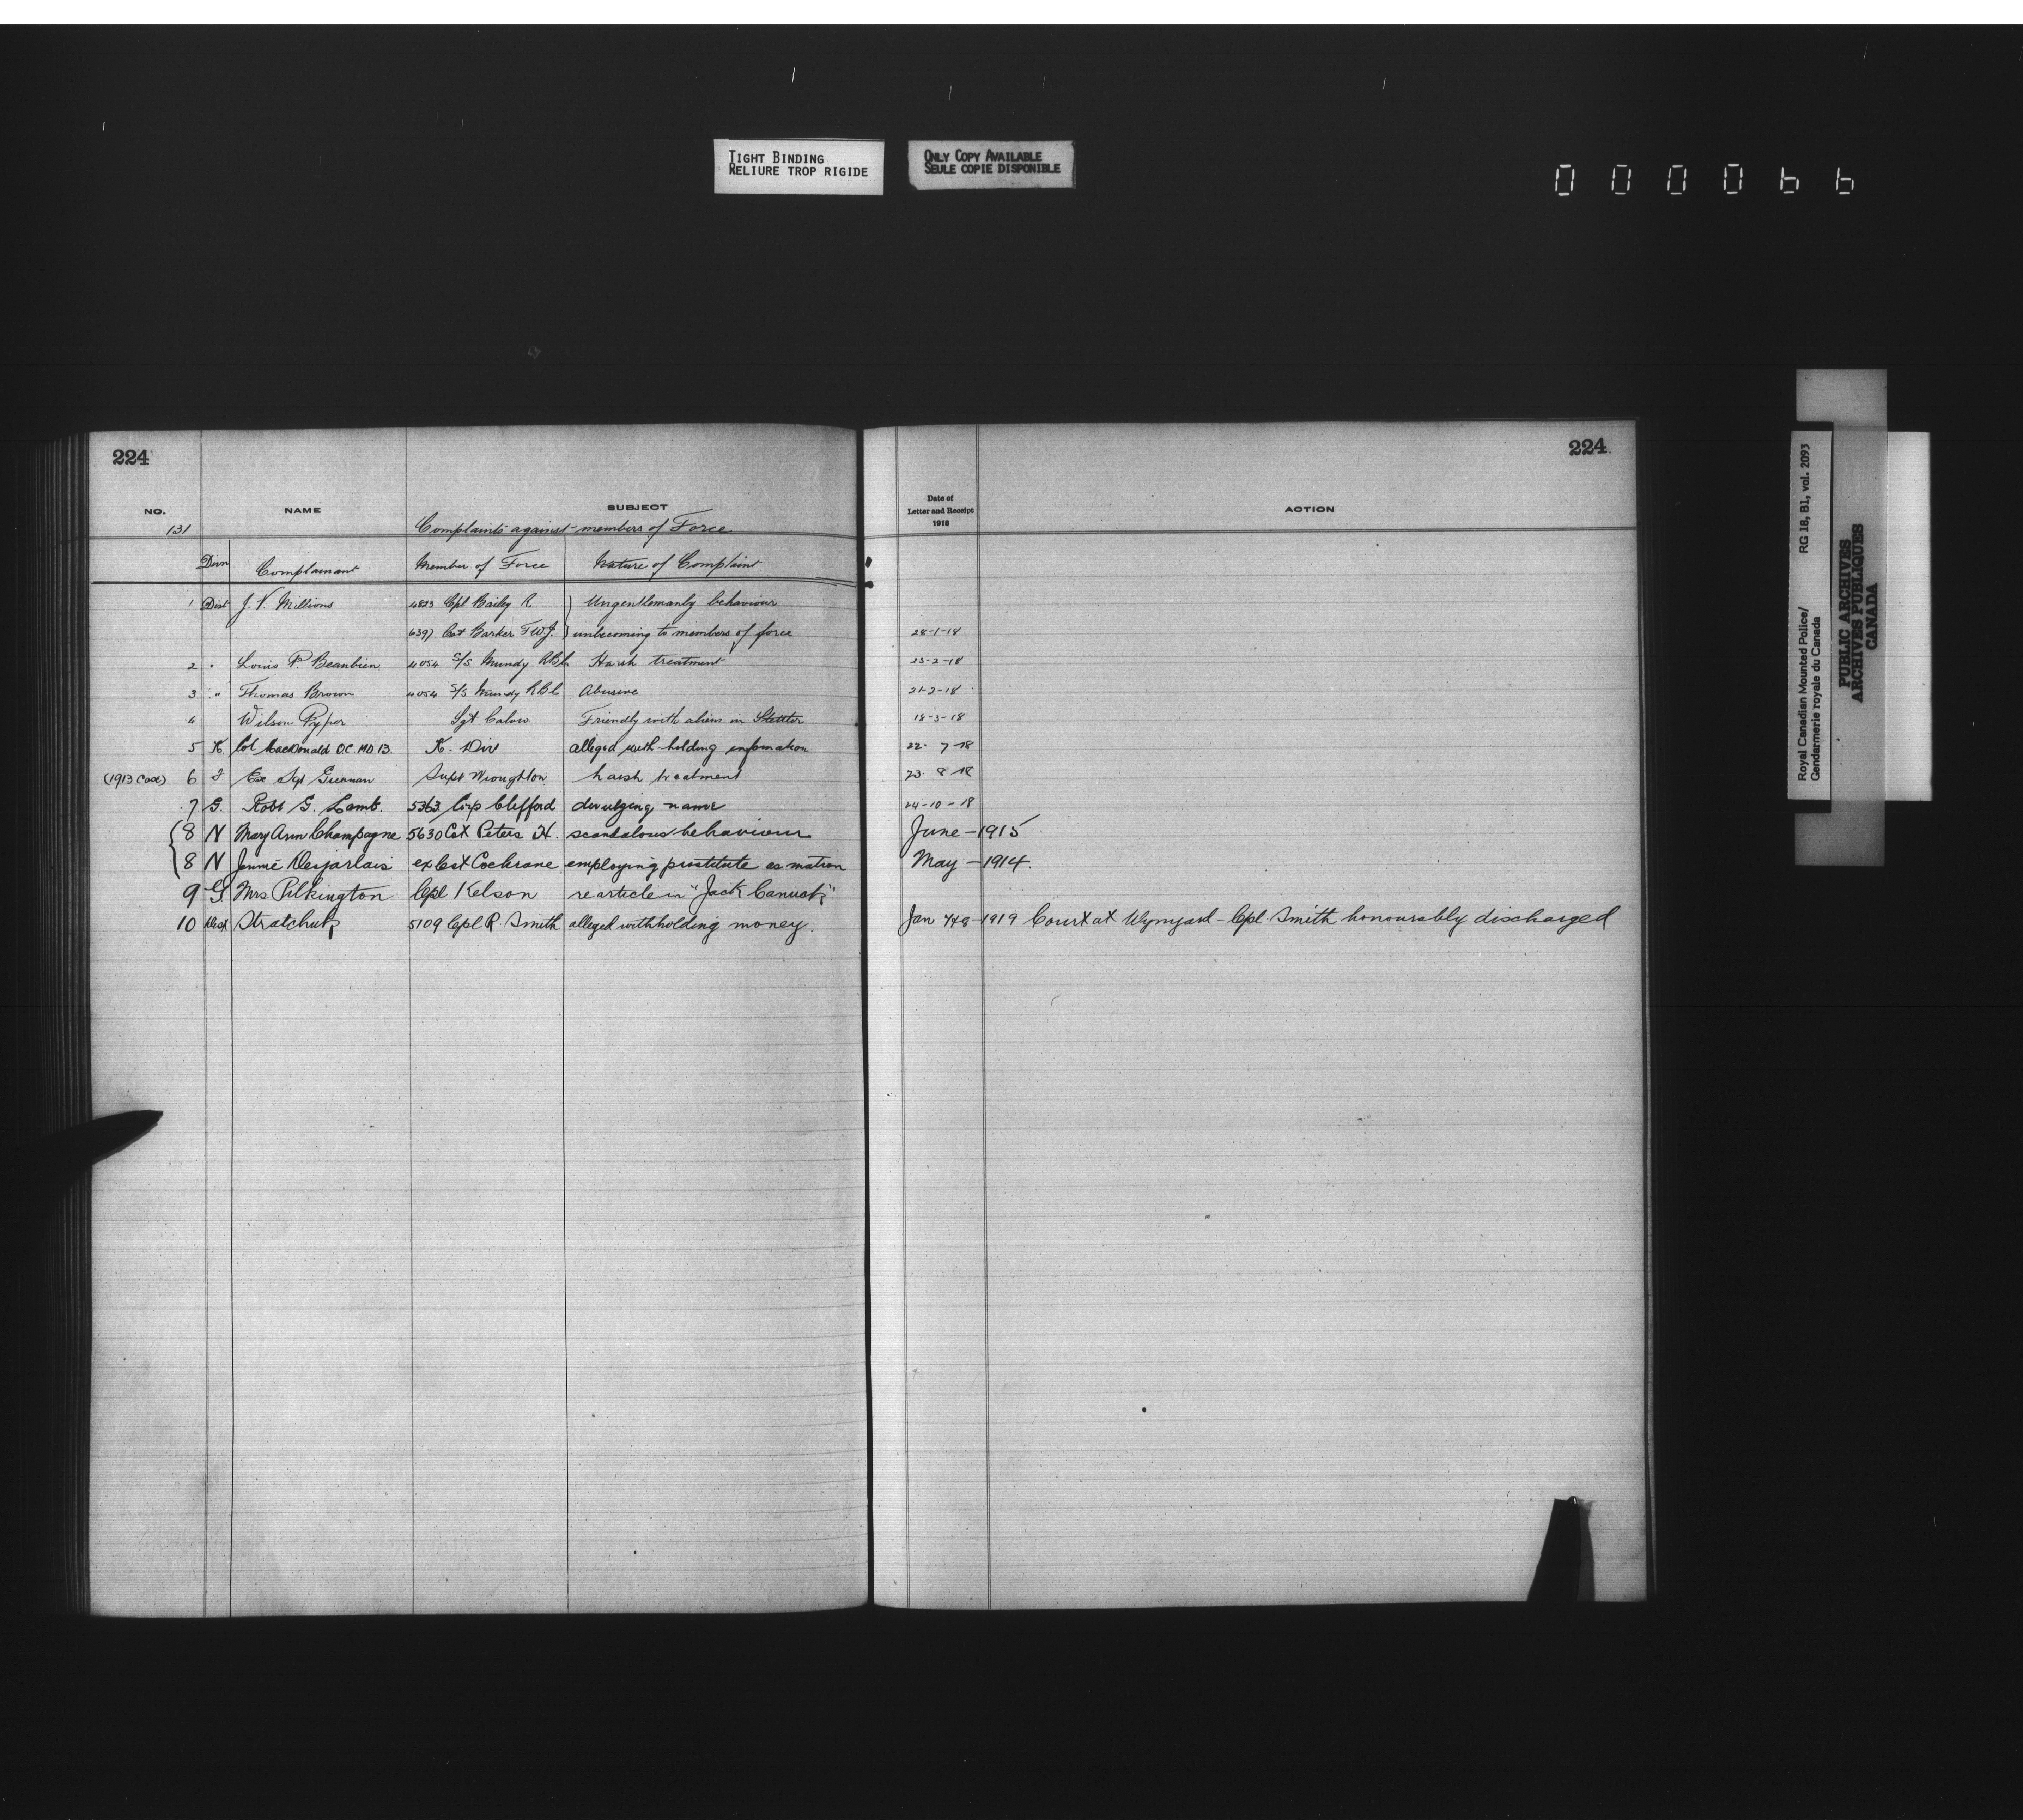 TIGHT BINDING
RELIURE TROP RIGIDE
ONLY COPY AVAILABLE
SEULE COPIE DISPONIBLE
000066
224
224
NO. NAME SUBJECT
Date of
Letter and Receipt
1918
ACTION
131 Complaints against members of Force
Divn Complainant Member of Force Nature of Complaint
1 Dist J. V. Millions 4823 Cpl Bailey R ) Ungentlemanly behaviour
6397 Cst Barker F.W.J. ) unbecoming to members of force 28-1-18
2 " Louis P. Beaubien 4054 S/S Mundy R.B.C. Harsh treatment 23-2-18
3 " Thomas Brown 4054 S/S Mundy R.B.C. Abusive 21-2-18
4 Wilson Pyper Sgt Calow Friendly with aliens in Stettler 18-3-18
5 K Col MacDonald O.C. MD 13. K. Div alleged with-holding information 22. 7-18
(1913 Case) 6 Ex Sgt Supt Wroughton harsh treatment 23. 8-18
7 G. Robt G. Lamb. 5363 Corp Clifford divulging name 24-10-18
8 N Mary Ann Champagne 5630 Cst Peters H. scandalous behaviour June - 1915
8 N Jennie Desjarlais ex Cst Cochrane employing prostitute as matron May - 1914.
9 G Mrs Pilkington Cpl Kelson re article in "Jack Canuck"
10 Dist 5109 Cpl R. Smith alleged withholding money. Jan 7+8-1919 Court at Wynyard - Cpl. Smith honourably discharged
Royal Canadian Mounted Police/ RG 18, B1, vol. 2093
Gendarmerie royale du Canada
PUBLIC ARCHIVES
ARCHIVES PUBLIQUES
CANADA